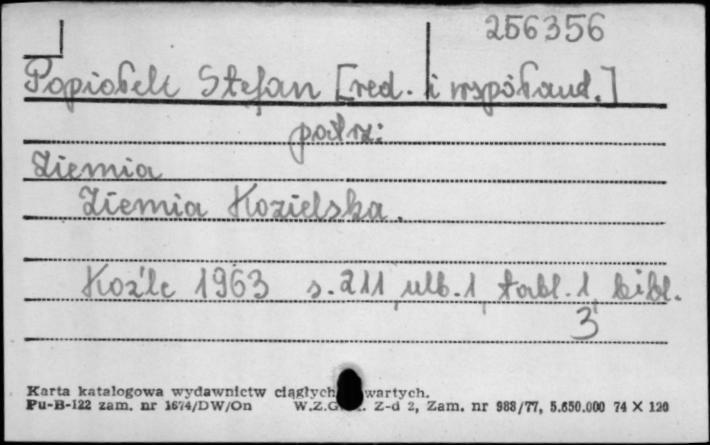 256356
Popiołek Stefan [red. i współaut.]
patrz:
Ziemia
Ziemia Kozielska.
Koźle 1963 s. 211, ulb. 1, tabl. 1, bibl.
3
Karta katalogowa wydawnictw ciągłych wartych.
Pu-B-122 zam. nr 1674/DW/On W.Z.G. Z-d 2, Zam. nr 988/77, 5.650.000 74 X 120